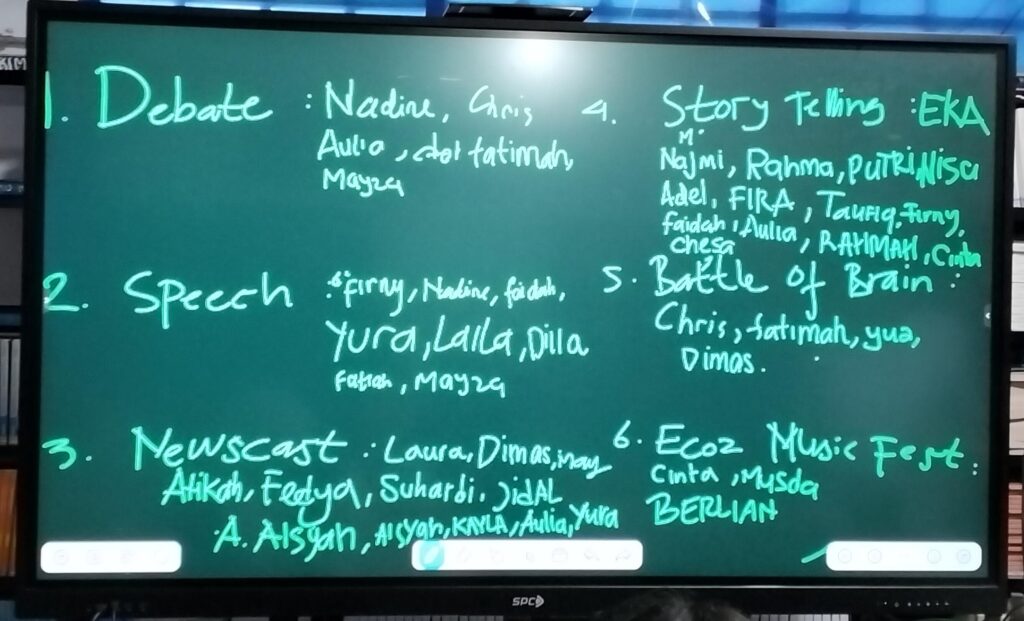 1. Debate : Nadine, Chris
Aulia, fatimah,
Mayza
2. Speech : firny, Nadine, faidah,
Yura, Laila, Dilla
Fatiah, Mayza
3. Newscast : Laura, Dimas, may
Atikah, Fedya, Suhardi, JidAL
A. Aisyah, Aisyah, KAYLA, Aulia, Yura
4. Story Telling : EKA
M.
Najmi, Rahma, PUTRI, Nisa
Adel, FIRA, Taufiq, Firny,
faidah, Aulia, RAHMAH, Cinta
chesa
5. Battle of Brain :
Chris, fatimah, yua,
Dimas.
6. Eco2 Music Fest :
Cinta, Musda
BERLIAN
SPC